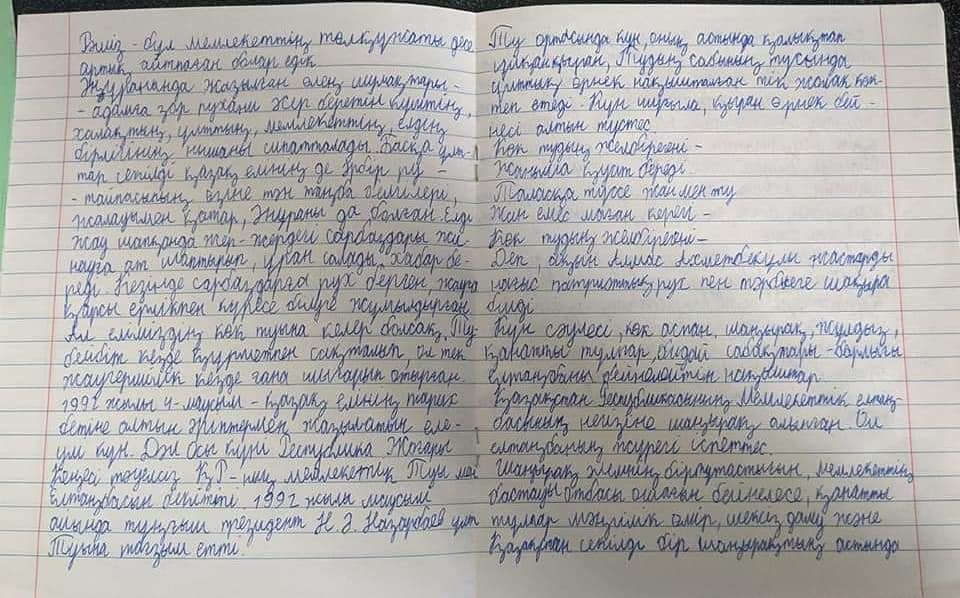 Рәміз - бұл мемлекеттің төлқұжаты десе
артық айтпаған болар едік.
Әнұрананда жазылған өлең шумақтары -
- адамға зор рухани жер беретін күштің,
халақтың, ұлттың, мемлекеттің, елдің
бірлігінің нышаны сипатталады. Басқа ұлт-
тар секілді қазақ елінің де әрбір ру -
- тайпасының өзіне тән таңба белгілері,
жалауымен қатар, Әнұраны да болған. Елді
жау шапқанда жер-жердегі сарбаздары жи-
науға ат шаптырып, ұран салады, хабар бе-
реді. Кезінде сарбаздарға рух берген, жауға
қарсы ерлікпен күресе білуге жұмылдырған.
Ал еліміздің көк туына келер болсақ, Ту
бейбіт кезде құрметпен сақталып, ол тек
жаугершілік кезде ғана шығарып отырған.
1992 жылы 4-маусым - қазақ елінің тарих
бетіне алтын әріптермен жазылатын еле-
улі күн. Дәл осы күні Республика Жоғары
Кеңесі тәуелсіз ҚР-ның мемлекеттік Туы мен
Елтаңбасын бекітті 1992 жылы маусым
айында тұңғыш президент Н. Ә. Назарбаев ұлт
Туына тағзым етті.
Ту ортасында күн, оның астында қалықтап
ұшқан қыран, Тудың сабының тұсында
ұлттық өрнек нақышталған тік жолақ көк-
теп өтеді. Күн шұғыла, қыран өрнек бей -
несі алтын түстес
Көк тудың желбірегені -
Жаныма қуат береді.
Таласқа түссе жан мен ту
Жан емес маған керегі -
Көк тудың желбірегені -
Деп, ақын Алмас Ахметбекұлы жастарды
нағыс патриоттық рух пен тәрбиеге шақыра
білді
Күн сәулесі, көк аспан, шаңырақ, жұлдыз,
қанатты тұлпар, бидай сабақтары - барлығы
Елтаңбаны бейнелейтін нақыштар.
Қазақстан Республикасының Мемлекеттік елтаң-
басының негізіне шаңырақ алынған. Ол
елтаңбаның жүрегі іспеттес.
Шаңырақ жемнің біртұтастығын, мемлекеттің
бастауы отбасы ошағын бейнелесе, қанатты
тұлпар мәңгілік өмір, шексіз даму және
Қазақстан секілді бір шаңырақтың астында